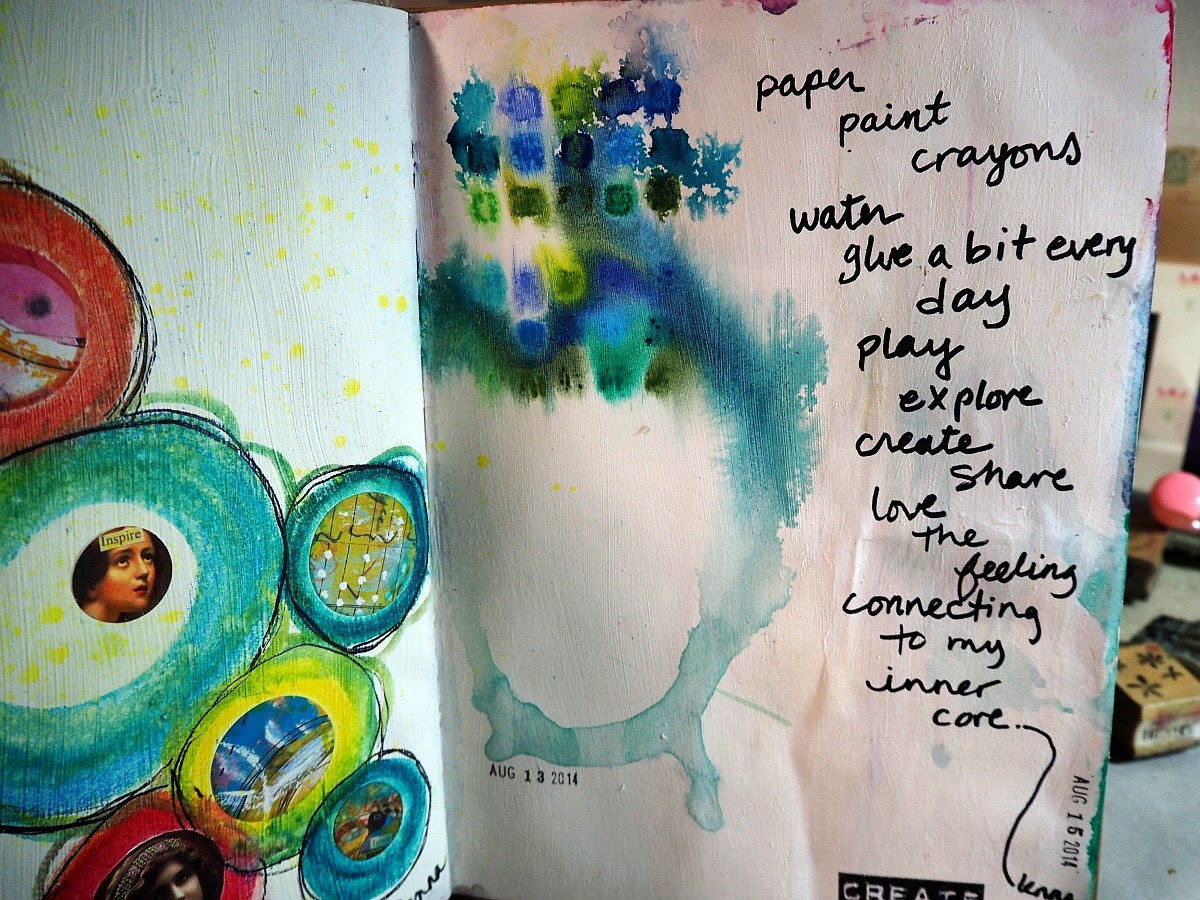 Inspire
paper
paint
crayons
water
glue a bit every
day
play
explore
create
share
love
the
feeling
connecting
to my
inner
core.
AUG 13 2014
AUG 15 2014
CREATE